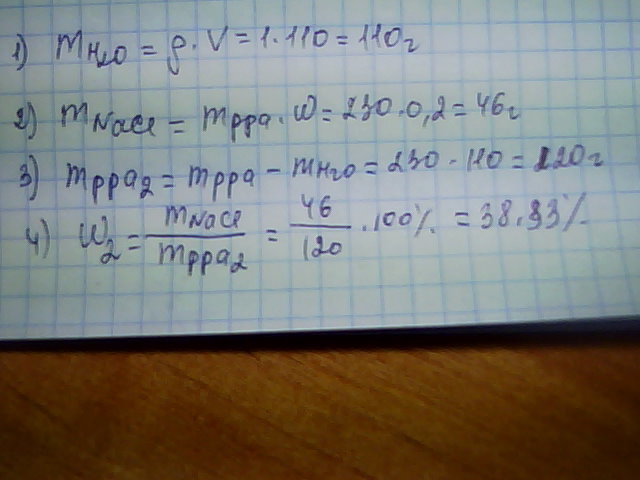 1) mH₂O = ρ · V = 1 · 110 = 110г
2) mNaCl = mрра · W = 230 · 0,2 = 46г
3) mрра₂ = mрра - mH₂O = 230 - 110 = 120г
4) W₂ = mNaCl / mрра₂ = 46 / 120 · 100% = 38.33%